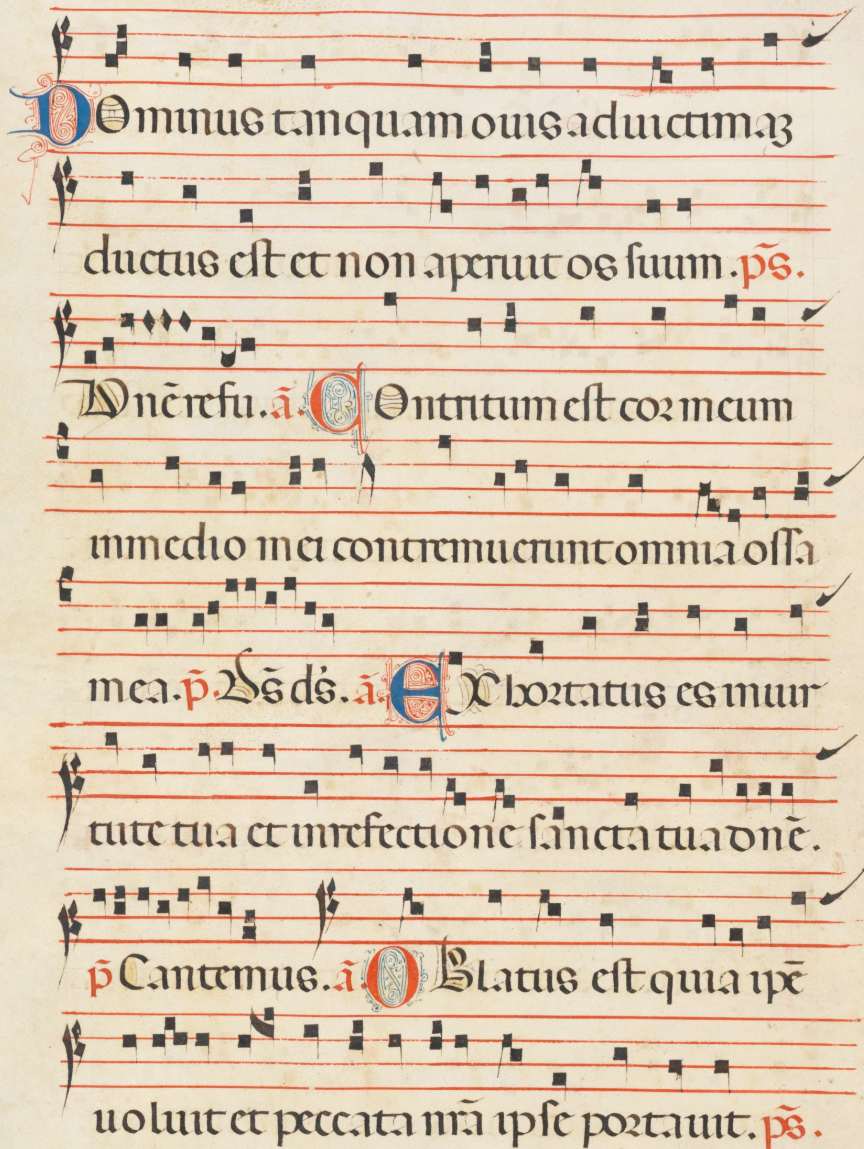 Dominus tanquam ouis ad uictimaꝫ
ductus est et non aperuit os suum. ps̄.
Dnē refu. ā. Contritum est cor meum
in medio mei contremuerunt omnia ossa
mea. p̄. Ds̄ ds̄. ā. Exhortatus es in uir
tute tua et in refectione sancta tua dnē.
p̄ Cantemus. ā. Oblatus est quia ipē
uoluit et peccata nrā ipse portauit. ps̄.